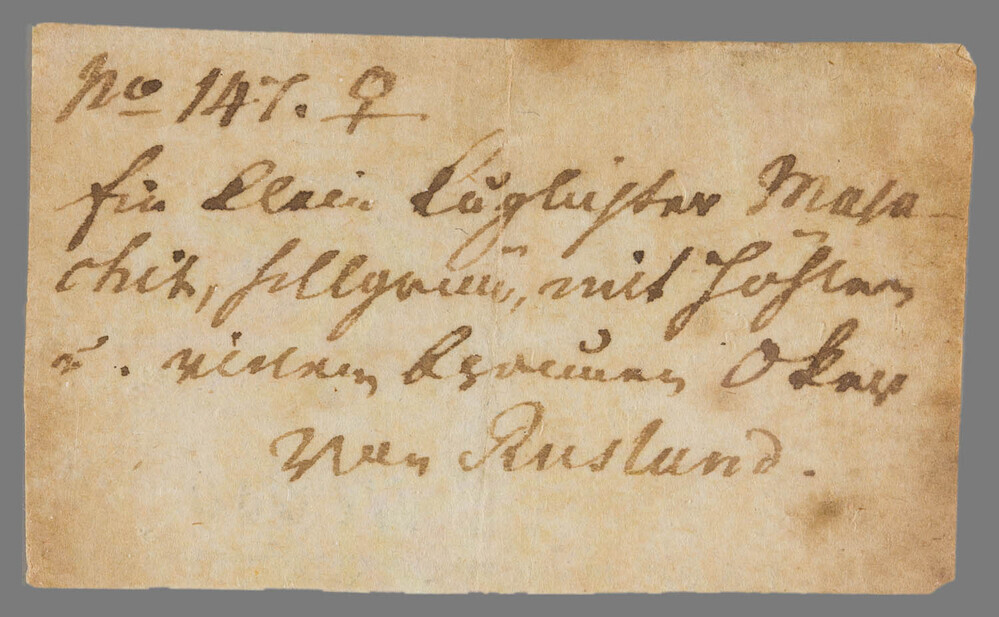 No 147. ♀
Ein klein kuglichter Mala-
chit, hellgrün, mit Höhlen
u. einem braunen Oker
von Rusland.